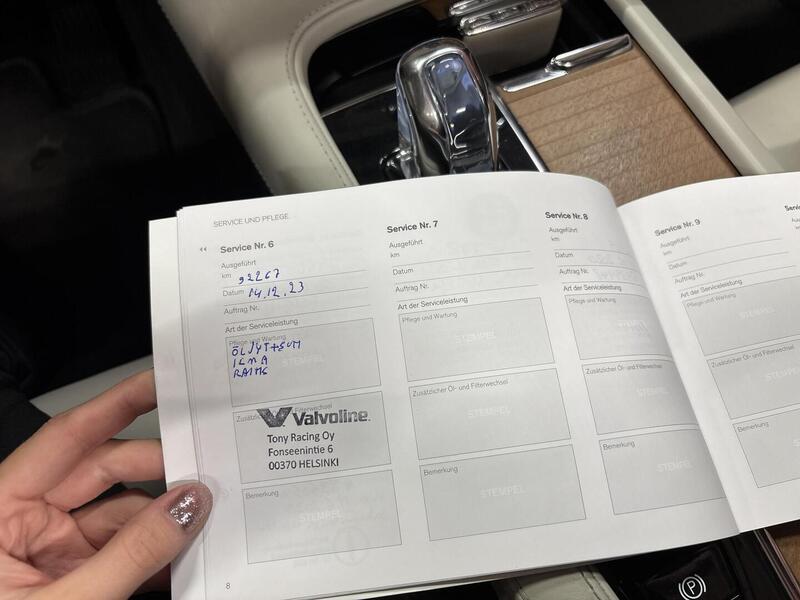 SERVICE UND PFLEGE.
Service Nr. 6
Ausgeführt
km 92267
Datum 14.12.23
Auftrag Nr.
Art der Serviceleistung
Pflege und Wartung
ÖLJYT+SUM
STEMPEL
Filterwechsel
Valvoline.
Tony Racing Oy
Fonseenintie 6
00370 HELSINKI
Bemerkung
STEMPEL
8
Service Nr. 7
Ausgeführt
km
Datum
Auftrag Nr.
Art der Serviceleistung
Pflege und Wartung
STEMPEL
Zusätzlicher Öl- und Filterwechsel
STEMPEL
Bemerkung
STEMPEL
Service Nr. 8
Ausgeführt
km
Datum
Auftrag Nr.
Art der Serviceleistung
Pflege und Wartung
STEMPEL
Zusätzlicher Öl- und
STEMPEL
Bemerkung
STEMPEL
Service Nr. 9
Ausgeführt
km
Datum
Auftrag Nr.
Art der Serviceleistung
Pflege und Wartung
STEMPEL
Zusätzlicher Öl- und Filterwechsel
STEMPEL
Bemerkung
STEMPEL
P